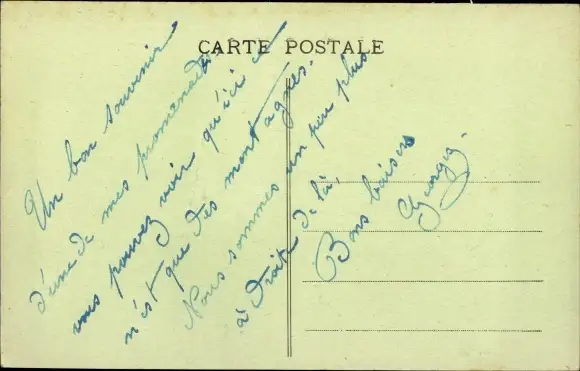 CARTE POSTALE
Un bon souvenir
d'une de mes promenades,
vous pouvez voir qu'ici ce
n'est que des montagnes.
Nous sommes un peu plus
à droit de là,
Bons baisers
Georges.